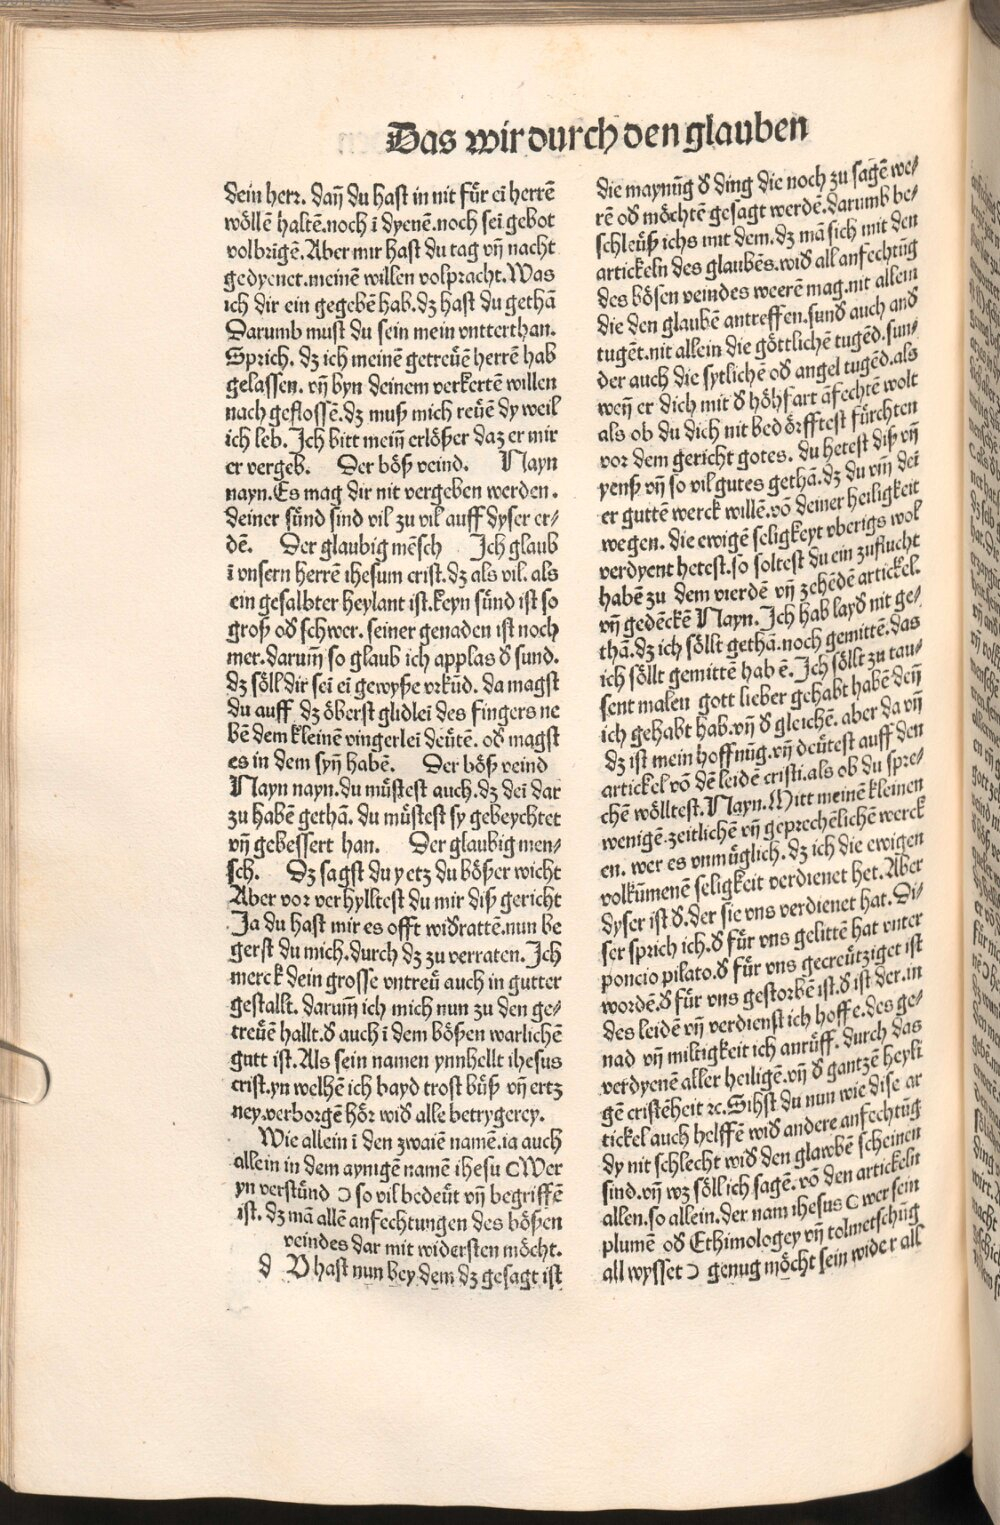 Das wir durch den glauben
dein herr. dañ du hast in nit für ei herrē
wöllē haltē.noch ī dyenē.noch sei gebot
volbrīgē.Aber mir hast du tag vñ nacht
gedyenet.meinē willen volpracht.Was
ich dir ein gegebē hab.dz hast du gethā
Darumb must du sein mein vntterthan.
Sprich. dz ich meinē getreüē herrē hab
gelassen. vñ byn deinem verkertē willen
nach geflossē.dz muß mich reüē dy weil
ich leb. Ich bitt meiñ erlößer daz er mir
er vergeb. Der böß veind. Nayn
nayn.Es mag dir nit vergeben werden.
deiner sünd sind vil zu vil auff dyser er⸗
dē. Der glaubig mēsch Ich glaub
ī vnsern herrē ihesum crist.dz als vil. als
ein gesalbter heylant ist.keyn sünd ist so
groß od̄ schwer. seiner genaden ist noch
mer.darum̄ so glaub ich applas d̄ sund.
dz söll dir sei ei gewyße vrkūd. da magst
du auff dz öberst glidlei des fingers ne
bē dem kleinē vingerlei deütē. od̄ magst
es in dem syñ habē. Der böß veind
Nayn nayn.du müstest auch.dz dei dar
zu habē gethā. du müstest sy gebeychtet
vñ gebessert han. Der glaubig men⸗
sch. Dz sagst du yetz du bößer wicht
Aber vor verhylltest du mir diß gericht
Ja du hast mir es offt wid̄rattē.nun be
gerst du mich.durch dz zu verraten. Ich
merck dein grosse vntreü auch in gutter
gestallt. darum̄ ich mich nun zu den ge⸗
treüē hallt.d̄ auch ī dem bößen warlichē
gutt ist.Als sein namen ynnhellt ihesus
crist.yn welhē ich bayd trost büß vñ ertz
ney.verborgē hör wid̄ alle betrygerey.
Wie allein ī den zwaiē namē.ia auch
allein in dem aynigē namē ihesu (Wer
yn verstünd ) so vil bedeüt vñ begriffē
ist. dz mā allē anfechtungen des bößen
veindes dar mit widersten möcht.
d Vhast nun bey dem dz gesagt ist
die maynūg d̄ ding die noch zu sagē we⸗
rē od̄ möchtē gesagt werdē.darumb be⸗
schleüß ichs mit dem.dz mā sich mit den
artickeln des glaubēs.wid̄ all anfechtūg
des bösen veindes weerē mag.nit allein
die den glaubē antreffen.sund̄ auch and̄
tugēt.nit allein die göttlichē tugēd.sun⸗
der auch die sytlichē od̄ angel tugēd.als
weñ er dich mit d̄ höhfart āfechtē wolt
als ob du dich nit bedörfftest fürchten
vor dem gericht gotes. du hetest diß vñ
yenß vñ so vil gutes gethā.dz du vm̄ dei
er guttē werck willē.vō deiner heiligkeit
wegen. die ewigē seligkeyt vberigs wol
verdyent hetest.so soltest du ein zuflucht
habē zu dem vierdē vñ zehēdē artickel.
vñ gedēckē Nayn.Ich hab layd nit ge⸗
thā.dz ich söllt gethā.noch gemittē.das
ich söllt gemittē hab ē.Ich söllt zu tau⸗
sent malen gott lieber gehabt habē deñ
ich gehabt hab.vñ d̄ gleichē. aber da vñ
dz ist mein hoffnūg.vñ deütest auff den
artickel vō dē leidē cristi.als ob du spre⸗
chē wölltest.Nayn.Mitt meinē kleinen
wenigē.zeitlichē vñ geprechēlichē werck
en. wer es vnmüglich.dz ich die ewigen
volkūmenē seligkeit verdienet het.Aber
dyser ist d̄.der sie vns verdienet hat.Di⸗
ser sprich ich.d̄ für vns gelittē hat vnter
poncio pilato.d̄ für vns gecreütziget ist
wordē.d̄ für vns gestorbē ist.d̄ ist der.in
des leidē vñ verdienst ich hoffe.des ge⸗
nad vñ miltigkeit ich anrüff. durch das
verdyenē aller heiligē.vñ d̄ gantzē heyli
gē cristēheit ꝛc.Sihst du nun wie dise ar
tickel auch helffē wid̄ andere anfechtūg
dy nit schlecht wid̄ den glawbē scheinen
sind.vñ wz söll ich sagē.vō den artickeln
allen.so allein.der nam ihesus (wer sein
plumē od̄ Ethimologey vñ tolmetschūg
all wysset ) genug möcht sein wider all